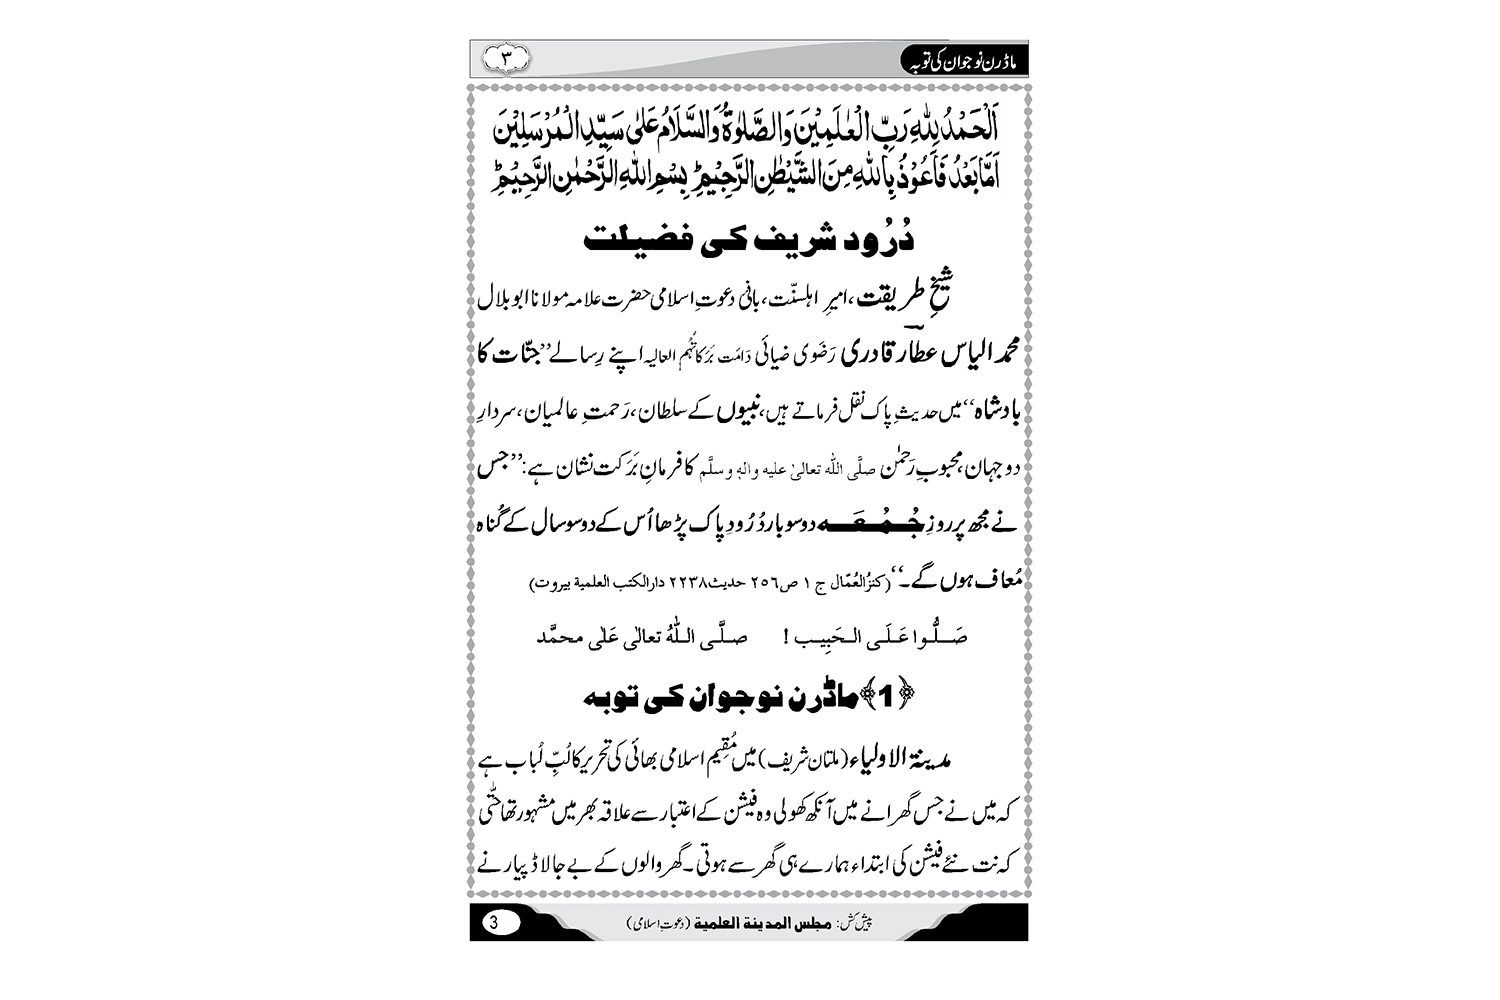 ماڈرن نوجوان کی توبہ
٣
اَلْحَمْدُ لِلّٰهِ رَبِّ الْعٰلَمِیْنَ وَالصَّلٰوةُ وَالسَّلَامُ عَلٰی سَیِّدِ الْمُرْسَلِیْنَ
اَمَّا بَعْدُ فَاَعُوْذُ بِاللّٰهِ مِنَ الشَّیْطٰنِ الرَّجِیْمِ ؕ بِسْمِ اللّٰهِ الرَّحْمٰنِ الرَّحِیْمِ ؕ
دُرُود شریف کی فضیلت
شیخِ طریقت، امیرِ اہلسنّت، بانیٔ دعوتِ اسلامی حضرت علامہ مولانا ابو بلال
محمد الیاس عطّار قادری رَضَوی ضیائی دَامَت بَرَکاتُہُم العالیہ اپنے رِسالے ’’جنّات کا
بادشاہ‘‘ میں حدیثِ پاک نقل فرماتے ہیں، نبیوں کے سلطان، رَحمتِ عالمیان، سردارِ
دو جہان، محبوبِ رَحمٰن صلَّی اللّٰه تعالیٰ علیه واله وسلَّم کا فرمانِ بَرَکت نشان ہے: ’’جس
نے مجھ پر روزِ جُمُعَہ دو سو بار دُرُودِ پاک پڑھا اُس کے دو سو سال کے گُناہ
مُعاف ہوں گے۔‘‘ (کنزُالعُمّال ج ۱ ص ۲۵٦ حدیث ۲۲۳۸ دارالکتب العلمیة بیروت)
صَلُّوا عَلَی الحَبِیب ! صلَّی اللّٰهُ تعالٰی عَلٰی محمَّد
﴿1﴾ ماڈرن نوجوان کی توبہ
مدینۃ الاولیاء (ملتان شریف) میں مُقِیم اسلامی بھائی کی تحریر کا لُبِّ لُباب ہے
کہ میں نے جس گھرانے میں آنکھ کھولی وہ فیشن کے اعتبار سے علاقہ بھر میں مشہور تھا حتّٰی
کہ نت نئے فیشن کی ابتداء ہمارے ہی گھر سے ہوتی۔ گھر والوں کے بے جا لاڈ پیار نے
پیش کش: مجلس المدینة العلمیة (دعوتِ اسلامی)
3